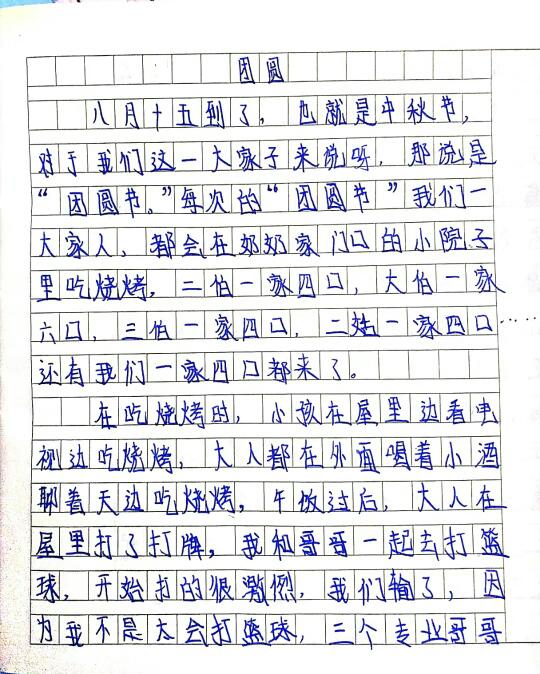 团圆
八月十五到了，也就是中秋节，
对于我们这一大家子来说呀，那说是
“团圆节，”每次的“团圆节”我们一
大家人、都会在奶奶家门口的小院子
里吃烧烤，二伯一家四口，大伯一家
六口，三伯一家四口，二姑一家四口……
还有我们一家四口都来了。
在吃烧烤时，小孩在屋里边看电
视边吃烧烤，大人都在外面喝着小酒
聊着天边吃烧烤，午饭过后，大人在
屋里打了打牌，我和哥哥一起去打篮
球，开始打的很激烈，我们输了，因
为我不是太会打篮球，三个专业哥哥